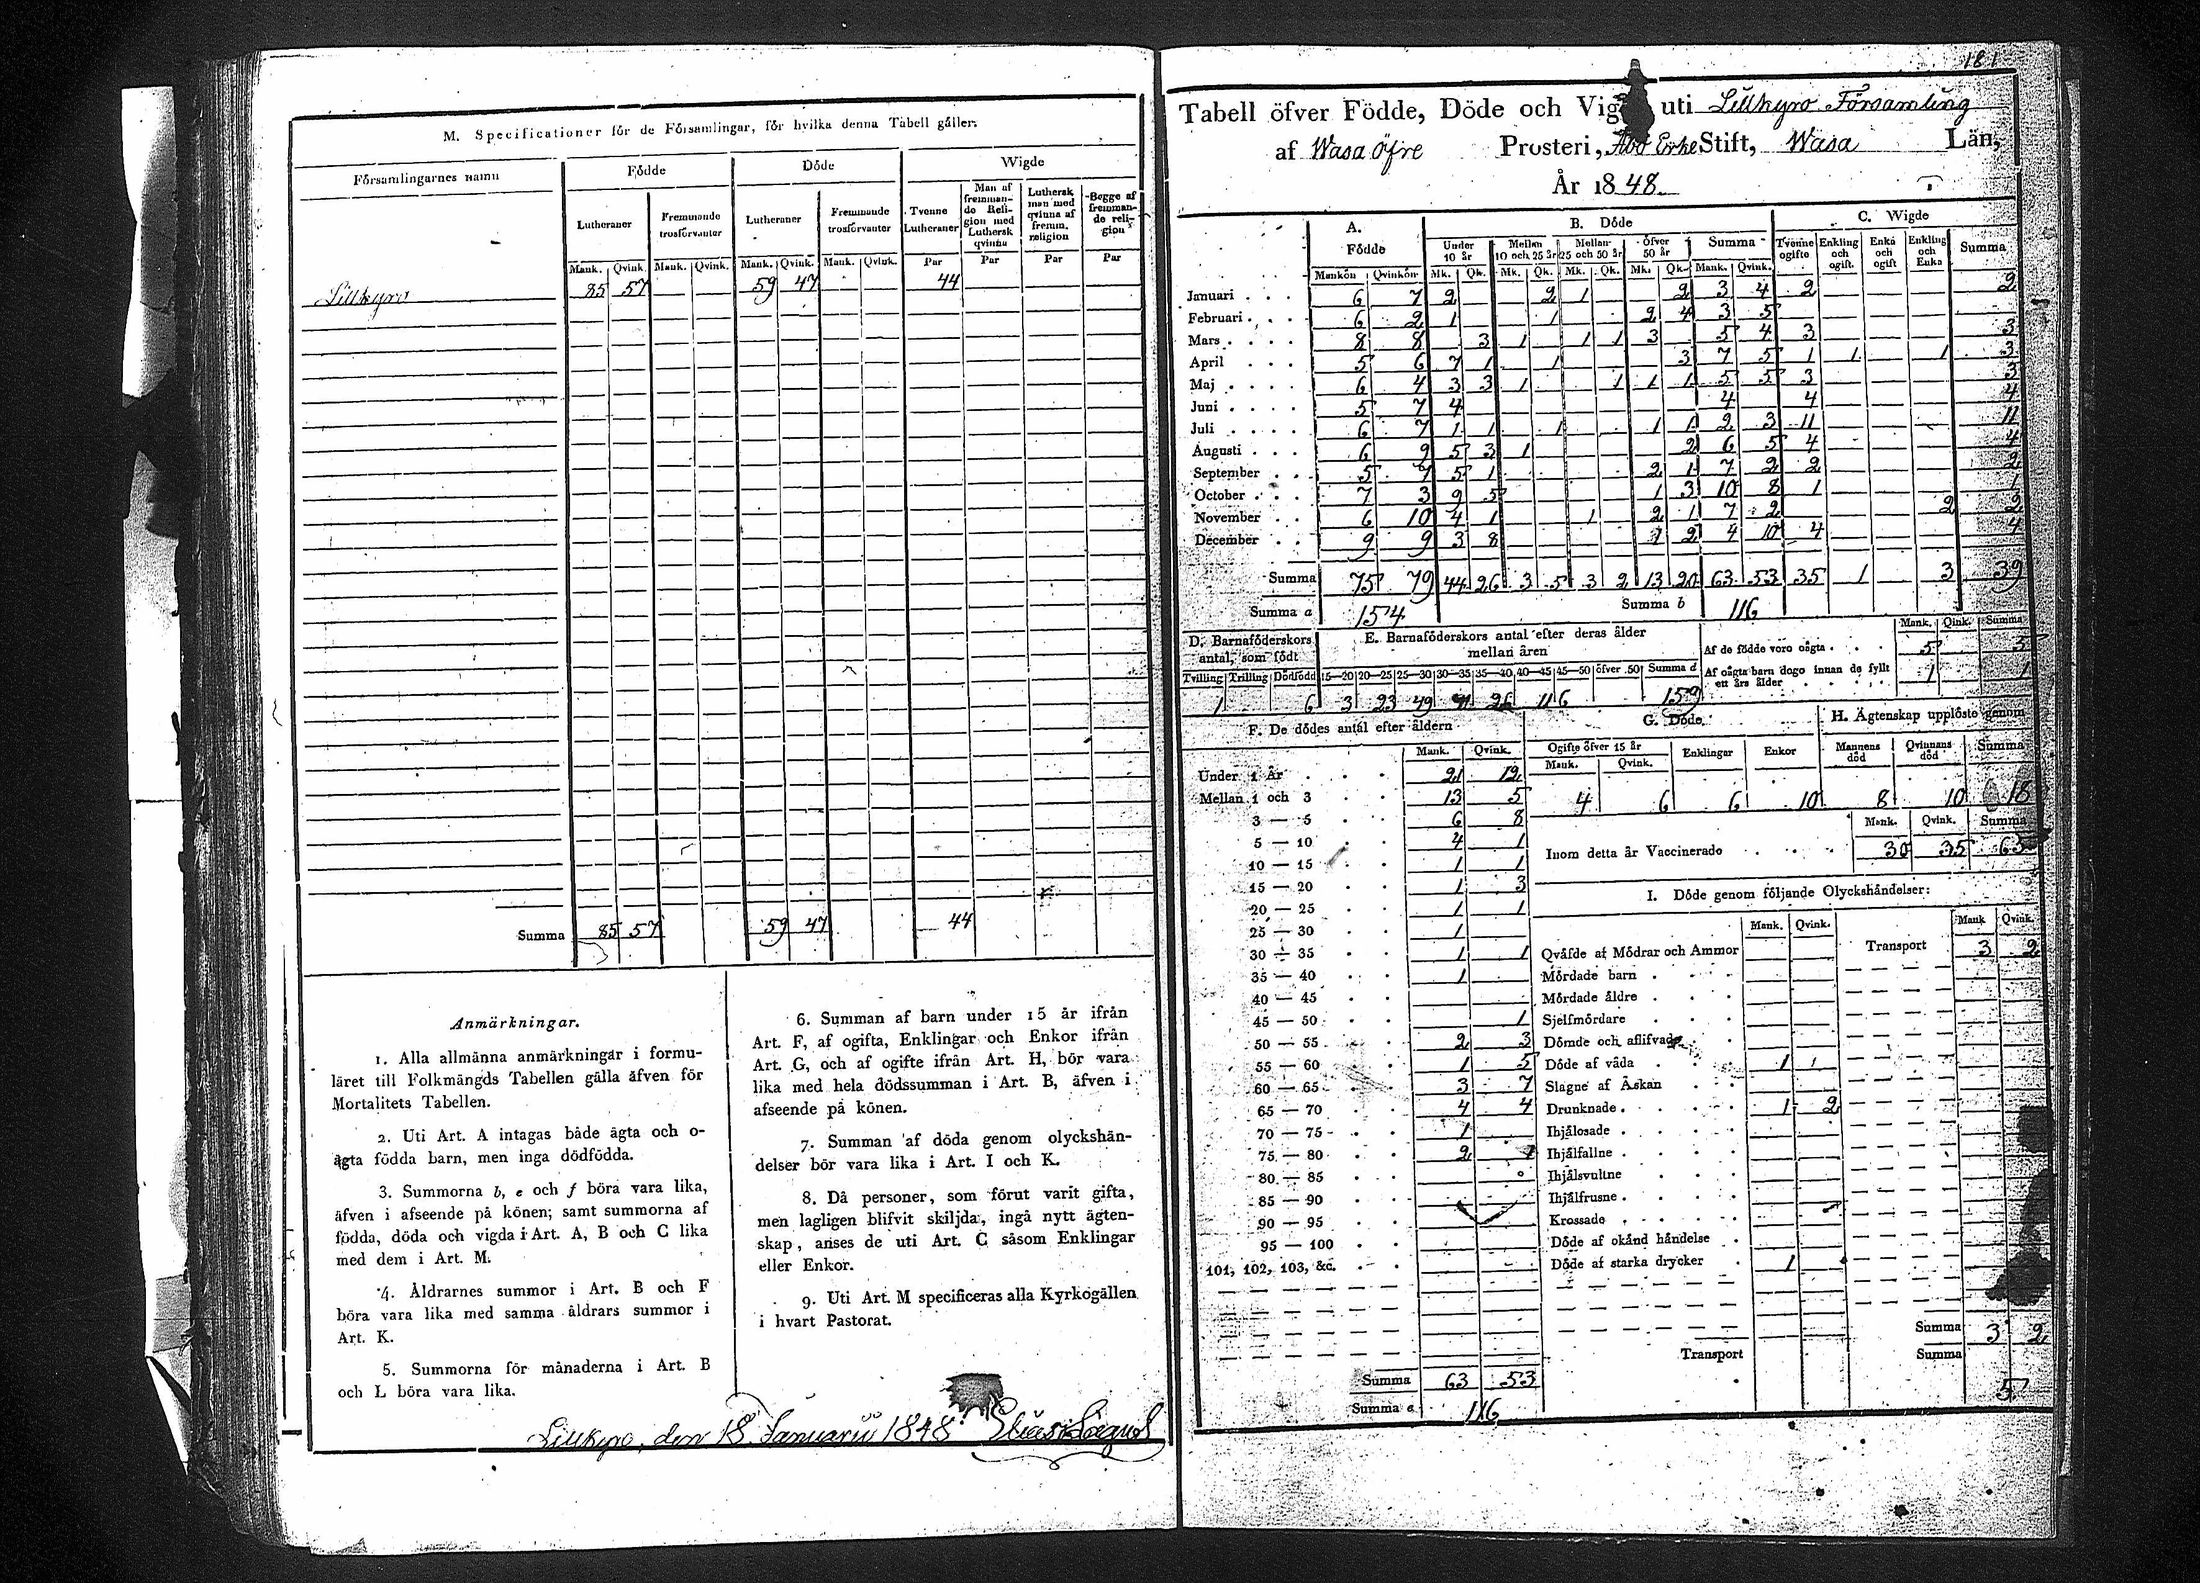 M. Specificationer för de Församlingar, för hvilka denna Tabell gäller.
Församlingarnes namn
Födde
Döde
Wigde
Lutheraner
Fremmande trosförvanter
Lutheraner
Fremmande trosförvanter
Tvenne Lutheraner
Man af fremmande Religion med Luthersk qvinna
Luthersk man med qvinna af fremm. religion
Begge af fremmande religion
Mank. Qvink. Mank. Qvink. Mank. Qvink. Mank. Qvink. Par Par Par Par
Lillkyro 85 57 59 47 44
Summa 85 57 59 47 44
Anmärkningar.
1. Alla allmänna anmärkningar i formu-
läret till Folkmängds Tabellen gälla äfven för
Mortalitets Tabellen.
2. Uti Art. A intagas både ägta och o-
ägta födda barn, men inga dödfödda.
3. Summorna b, e och f böra vara lika,
äfven i afseende på könen; samt summorna af
födda, döda och vigda i Art. A, B och C lika
med dem i Art. M.
4. Åldrarnes summor i Art. B och F
böra vara lika med samma åldrars summor i
Art. K.
5. Summorna för månaderna i Art. B
och L böra vara lika.
6. Summan af barn under 15 år ifrån
Art. F, af ogifta, Enklingar och Enkor ifrån
Art. G, och af ogifte ifrån Art. H, bör vara
lika med hela dödssumman i Art. B, äfven i
afseende på könen.
7. Summan af döda genom olyckshän-
delser bör vara lika i Art. I och K.
8. Då personer, som förut varit gifta,
men lagligen blifvit skiljda, ingå nytt ägten-
skap, anses de uti Art. C såsom Enklingar
eller Enkor.
9. Uti Art. M specificeras alla Kyrkogällen
i hvart Pastorat.
Lillkyro, den 18 Januarii 1848
181
Tabell öfver Födde, Döde och Vig uti Lillkyro Församling
af Wasa Öfre Prosteri, Åbo Erke Stift, Wasa Län,
År 1848.
A. Födde
B. Döde
C. Wigde
Under 10 år
Mellan 10 och 25 år
Mellan 25 och 50 år
Öfver 50 år
Summa
Tvenne ogifte
Enkling och ogift.
Enka och ogift
Enkling och Enka
Summa
Mankön Qvinkön Mk. Qk. Mk. Qk. Mk. Qk. Mk. Qk. Mank. Qvink.
Januari 6 7 2 2 1 2 3 4 2 2
Februari 6 2 1 1 2 4 3 5
Mars 8 8 3 1 1 1 3 5 4 3 3
April 5 6 7 1 1 3 7 5 1 1 1 3
Maj 6 4 3 3 1 1 1 1 5 5 3 3
Juni 5 7 4 4 4 4
Juli 6 7 1 1 1 1 1 2 3 11 11
Augusti 6 9 5 3 1 2 6 5 4 4
September 5 7 5 1 2 1 7 2 2 2
October 7 3 9 5 1 3 10 8 1 1
November 6 10 4 1 1 2 1 7 2 2 2
December 9 9 3 8 1 2 4 10 4 4
Summa 75 79 44 26 3 5 3 2 13 20 63 53 35 1 3 39
Summa a 154 Summa b 116
D. Barnaföderskors antal, som födt
Tvilling Trilling Dödfödd
1 6
E. Barnaföderskors antal efter deras ålder mellan åren
15—20 20—25 25—30 30—35 35—40 40—45 45—50 öfver 50 Summa d
3 23 49 26 159
Mank. Qink. Summa
Af de födde voro oägta 5 5
Af oägta barn dogo innan de fyllt ett års ålder 1 1
F. De dödes antal efter åldern
Mank. Qvink.
Under 1 År 21 12
Mellan 1 och 3 13 5
3 — 5 6 8
5 — 10 4 1
10 — 15 1 1
15 — 20 1 3
20 — 25 1 1
25 — 30 1
30 — 35 1 1
35 — 40 1
40 — 45
45 — 50 1
50 — 55 2 3
55 — 60 1 5
60 — 65 3 7
65 — 70 4 4
70 — 75 1
75 — 80 2 1
80 — 85
85 — 90
90 — 95
95 — 100
101, 102, 103, &c.
Summa 63 53
Summa e 116
G. Döde
Ogifte öfver 15 år
Mank. Qvink. Enklingar Enkor
4 6 6 10
H. Ägtenskap upplöste genom
Mannens död Qvinnans död Summa
8 10 18
Mank. Qvink. Summa
Inom detta år Vaccinerade 30 35 65
I. Döde genom följande Olyckshändelser:
Mank. Qvink. Mank. Qvink.
Qväfde af Mödrar och Ammor Transport 3 2
Mördade barn
Mördade äldre
Sjelfmördare
Dömde och aflifvade
Döde af våda 1
Slagne af Åskan
Drunknade 1 2
Ihjälosade
Ihjälfallne
Ihjälsvultne
Ihjälfrusne
Krossade
Döde af okänd händelse
Döde af starka drycker 1
Summa 3 2
Transport Summa 5